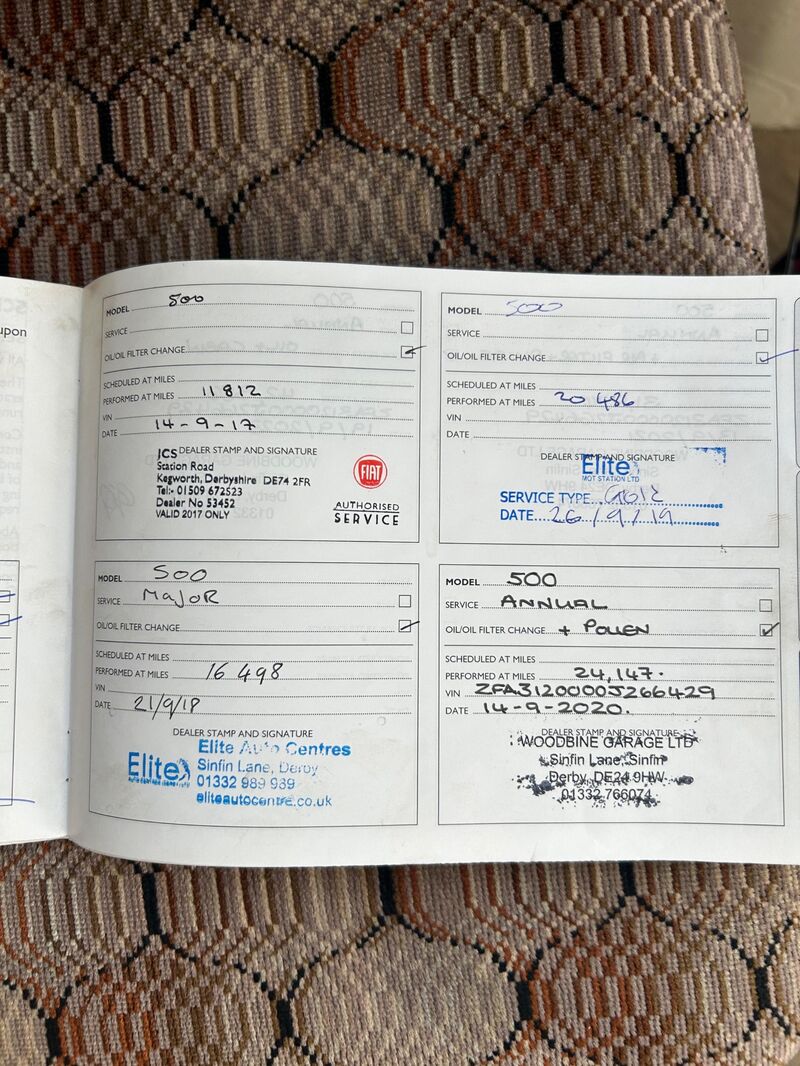 upon
MODEL 500
SERVICE
OIL/OIL FILTER CHANGE
SCHEDULED AT MILES
PERFORMED AT MILES 11 812
VIN
DATE 14-9-17
DEALER STAMP AND SIGNATURE
JCS
Station Road
Kegworth, Derbyshire DE74 2FR
Tel:- 01509 672523
Dealer No 53452
VALID 2017 ONLY
FIAT
AUTHORISED
SERVICE
MODEL 500
SERVICE MAJOR
OIL/OIL FILTER CHANGE
SCHEDULED AT MILES
PERFORMED AT MILES 16 498
VIN
DATE 21/9/18
DEALER STAMP AND SIGNATURE
Elite
Elite Auto Centres
Sinfin Lane, Derby
01332 989 989
eliteautocentre.co.uk
MODEL 500
SERVICE
OIL/OIL FILTER CHANGE
SCHEDULED AT MILES
PERFORMED AT MILES 20 486
VIN
DATE
DEALER STAMP AND SIGNATURE
Elite
MOT STATION LTD
SERVICE TYPE
DATE 26/9/19
MODEL 500
SERVICE ANNUAL
OIL/OIL FILTER CHANGE + POLLEN
SCHEDULED AT MILES
PERFORMED AT MILES 24,147.
VIN ZFA3120000J266429
DATE 14-9-2020.
DEALER STAMP AND SIGNATURE
WOODBINE GARAGE LTD
Sinfin Lane, Sinfin
Derby, DE24 9HW
01332 766074